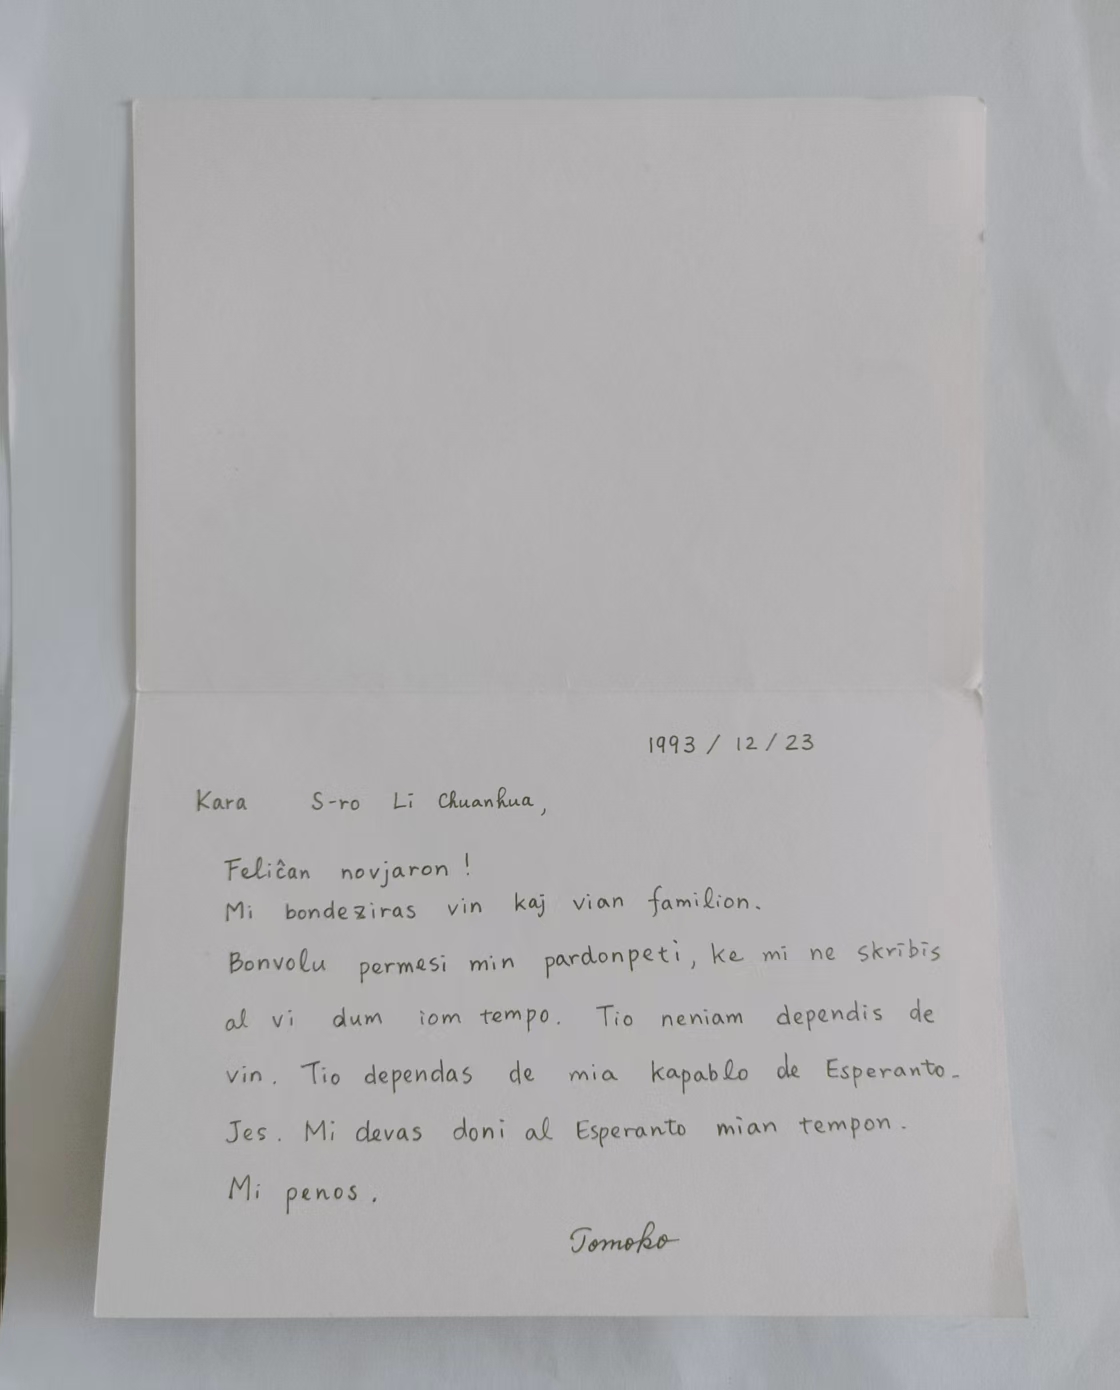 1993 / 12 / 23
Kara S-ro Li Chuanhua,
Feliĉan novjaron !
Mi bondeziras vin kaj vian familion.
Bonvolu permesi min pardonpeti, ke mi ne skribis
al vi dum iom tempo. Tio neniam dependis de
vin. Tio dependas de mia kapablo de Esperanto.
Jes. Mi devas doni al Esperanto mian tempon.
Mi penos.
Tomoko